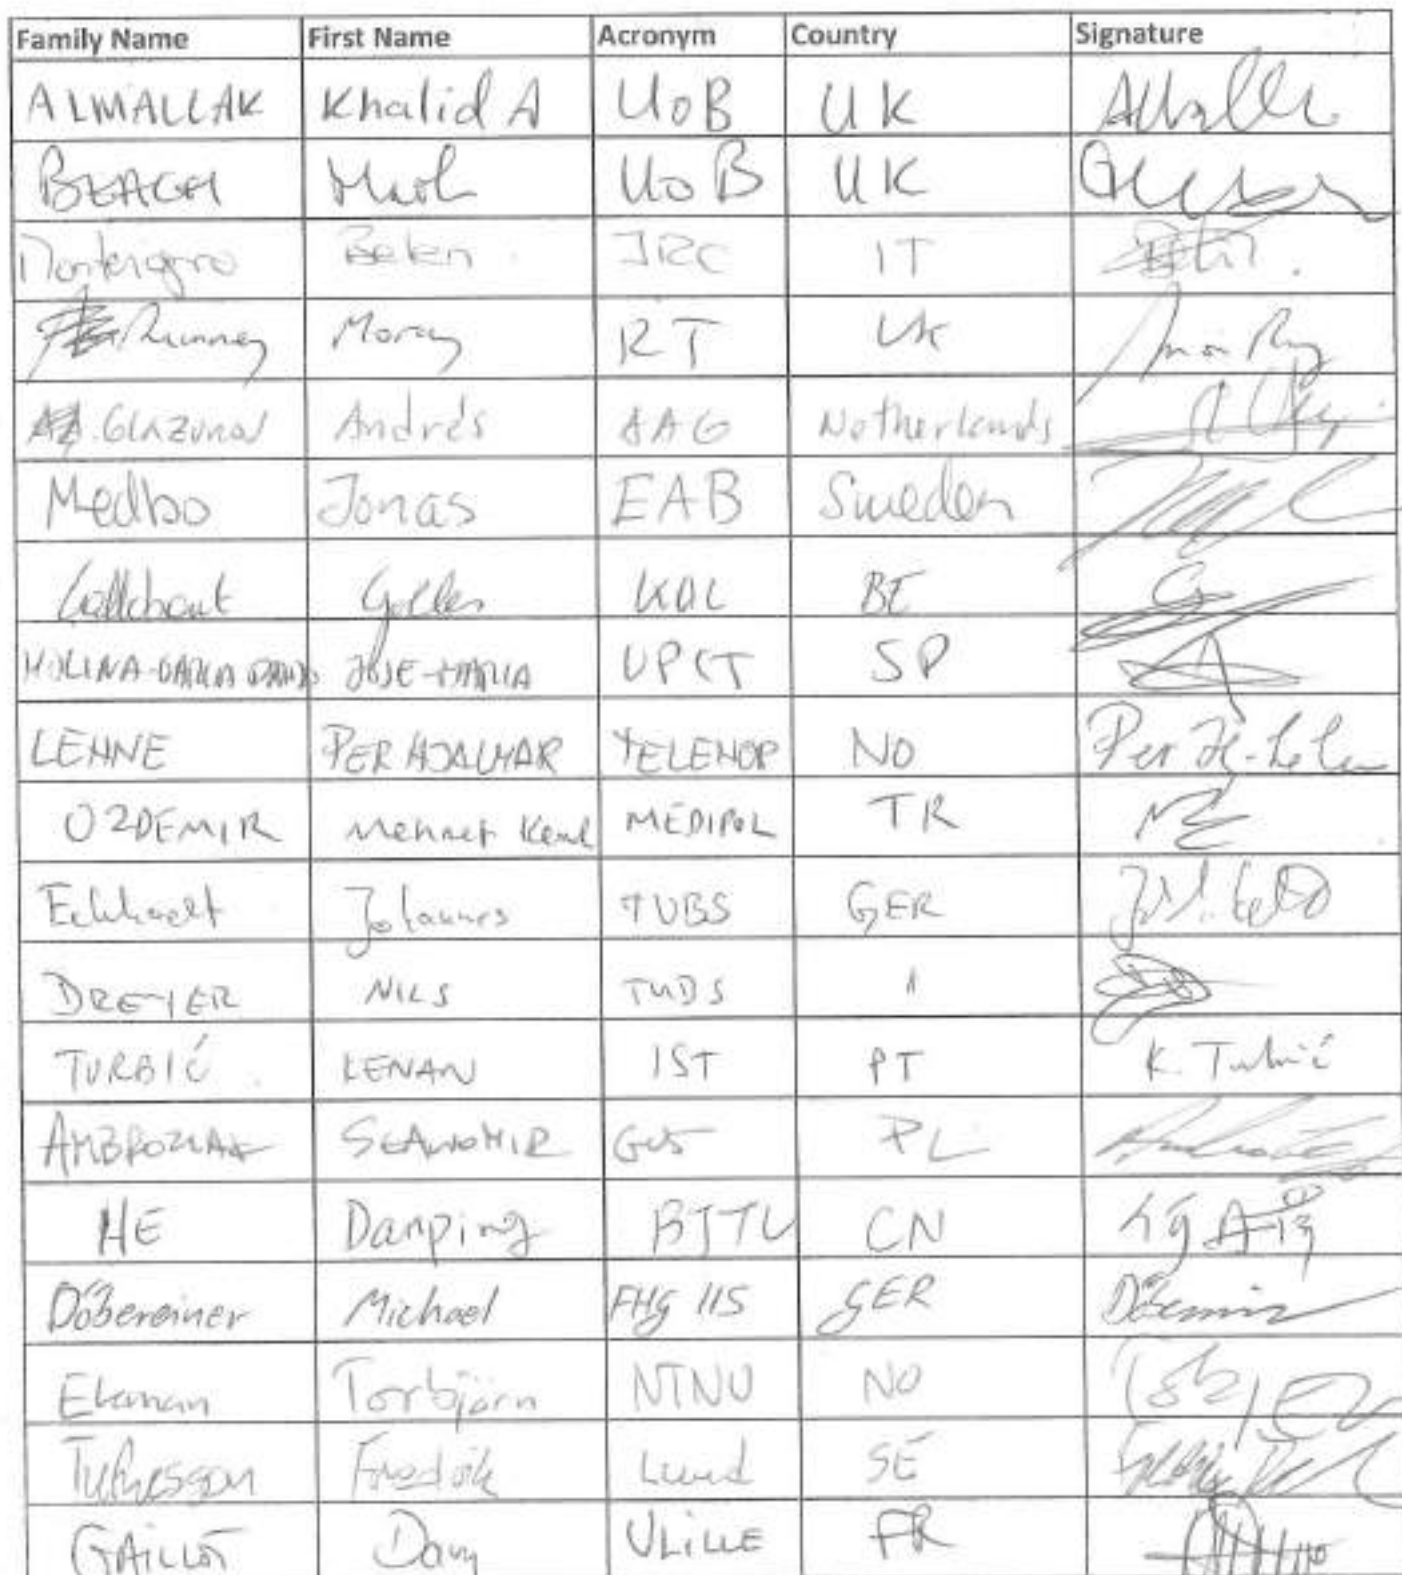 Family Name First Name Acronym Country Signature
ALMALLAK Khalid A UoB UK
BEACH Mark UoB UK
Montenegro Belen JRC IT
Rumney Moray RT UK
Glazunov Andrés AAG Netherlands
Medbo Jonas EAB Sweden
Callebaut Gilles KUL BE
MOLINA-GARCIA-PARDO JOSE-MARIA UPCT SP
LEHNE PER HJALMAR TELENOR NO Per Hj. Lehne
OZDEMIR Mehmet Kemal MEDIPOL TR
Eckhardt Johannes TUBS GER
DREYER NILS TUBS
TURBIĆ KENAN IST PT K. Turbić
AMBROZIAK SŁAWOMIR GUT PL
HE Danping BJTU CN
Döbereiner Michael FHG IIS GER
Ekman Torbjörn NTNU NO
Tufvesson Fredrik Lund SE
GAILLOT Davy ULILLE FR